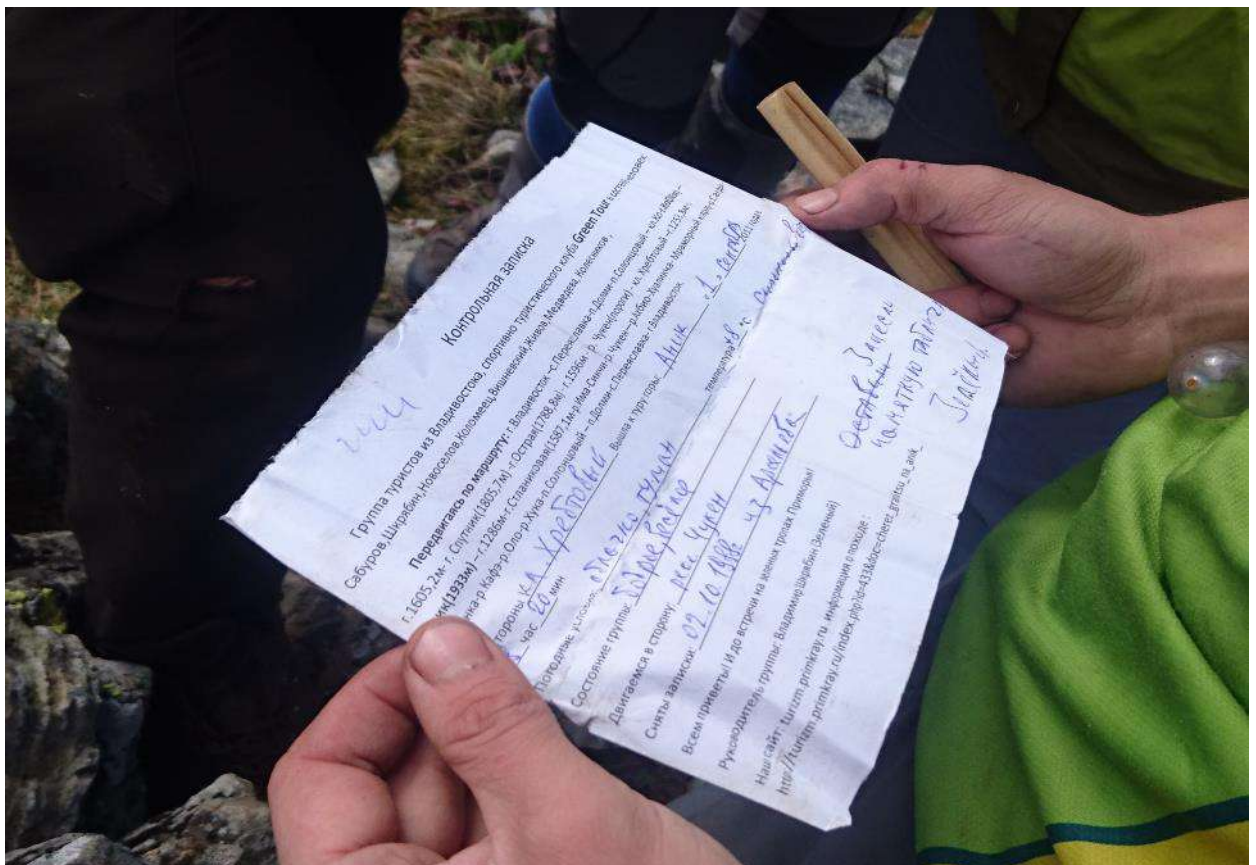 Контрольная записка
Группа туристов из Владивостока, спортивно туристического клуба Green Tour в
Сабуров,Шкрябин,Новоселов,Коломеец,Вишневский,Живов,Медведева,Колесников,
Передвигаясь по маршруту: г.Владивосток –с.Переяславка-п.Долми-п.Солонцовый – кл.
г.1605,2м- г. Спутник(1805,7м) -г.Острая(1788,8м)- г.1596м - р. Чукен(пороги) - кл. Хребтовый –г.1251,8м-
(1933м) – г.1286м-г.Стланиковая(1587,1м-р.Има-Синчи-р.Чукен—р.
-р Кафэ-р Оло-р.Хука-п.Солонцовый – п.Долми-с.Переяславка- г.Владивосток.
кл Хребтовый Вышла к туру горы: Аник «1» сентября 2011года
час 20 мин
Погодные условия: облачно, туман температура +8 °с
Состояние группы: бодрое
Двигаемся в сторону: реки Чукен
Сняты записки: 02.10.1998г из Арсеньева
Всем приветы! И до встречи на зеленых тропах Приморья!
Руководитель группы: Владимир Шкрябин (Зеленый)
Наш сайт: turizm.primkray.ru информация о походе:
http://turizm.primkray.ru/index.php?id=433&doc=cherez_granitsu_na_anik_